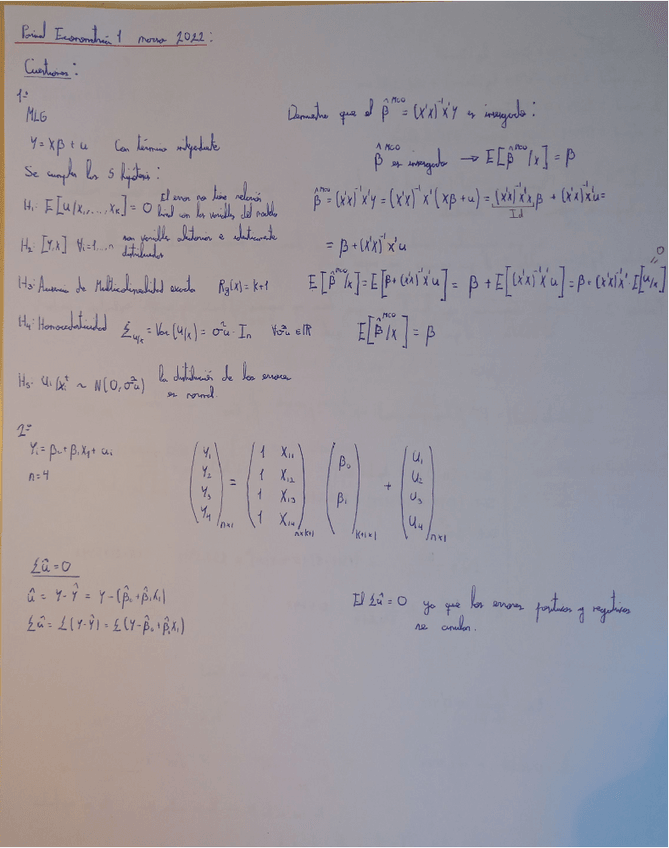 Parcial Econometría 1 marzo 2022:
Cuestiones:
1º
MLG
Y = Xβ + u Con término independiente
Se cumplen las 5 hipótesis:
H₁: E[u/x₁,...,xₖ] = 0 El error no tiene relación
lineal con las variables del modelo
H₂: [Y,X] ∀i=1...n son variables aleatorias e idénticamente
distribuidas
H₃: Ausencia de Multicolinealidad exacta Rg(x) = k+1
H₄: Homocedasticidad Σ_{u/x} = Var(u/x) = σ²u · Iₙ ∀σ²u ∈ ℝ
H₅: uᵢ/xᵢ ~ N(0, σ²u) la distribución de los errores
es normal.
Demuestre que el β̂^MCO = (X'X)⁻¹X'Y es insesgado:
β̂^MCO es insesgado → E[β̂^MCO/x] = β
β̂^MCO = (X'X)⁻¹X'Y = (X'X)⁻¹X'(Xβ + u) = (X'X)⁻¹X'X β + (X'X)⁻¹X'u =
Id
= β + (X'X)⁻¹X'u
E[β̂^MCO/x] = E[β + (X'X)⁻¹X'u] = β + E[(X'X)⁻¹X'u] = β + (X'X)⁻¹X' · E[u/x]
0
E[β̂^MCO/X] = β
2º
Yᵢ = β₀ + β₁X₁ + uᵢ
n = 4
(Y₁ Y₂ Y₃ Y₄)n×1 = (1 X₁₁ 1 X₁₂ 1 X₁₃ 1 X₁₄)n×k+1 (β₀ β₁)k+1×1 + (u₁ u₂ u₃ u₄)n×1
Σû = 0
û = Y - Ŷ = Y - (β̂₀ + β̂₁X₁)
Σû = Σ(Y - Ŷ) = Σ(Y - β̂₀ + β̂₁X₁)
El Σû = 0 ya que los errores positivos y negativos
se anulan.